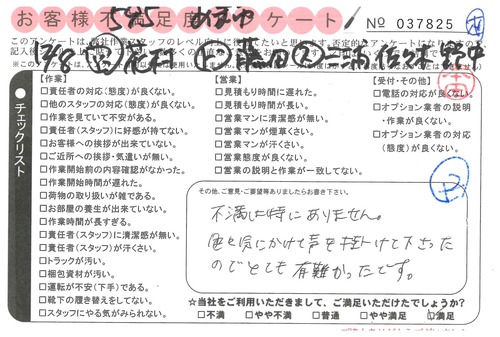 お客様不満足度アンケート!
No 037825
チェックリスト
【作業】
□責任者の対応(態度)が良くない。
□他のスタッフの対応(態度)が良くない。
□作業を見ていて不安がある。
□責任者(スタッフ)に好感が持てない。
□お客様への挨拶が出来ていない。
□ご近所への挨拶・気遣いが無い。
□作業開始前の内容確認がなかった。
□作業開始時間が遅れた。
□荷物の取り扱いが雑である。
□お部屋の養生が出来ていない。
□作業時間が長すぎる。
□責任者(スタッフ)に清潔感が無い。
□責任者(スタッフ)が汗くさい。
□トラックが汚い。
□梱包資材が汚い。
□運転が不安(下手)である。
□靴下の履き替えをしてない。
□スタッフにやる気がみられない。
【営業】
□見積もり時間に遅れた。
□見積もり時間が長い。
□営業マンに清潔感が無い。
□営業マンが煙草くさい。
□営業マンが汗くさい。
□営業態度が良くない。
□営業の説明と作業が一致してない。
【受付・その他】
□電話の対応が良くない。
□オプション業者の説明
・作業が良くない。
□オプション業者の対応
(態度)が良くない。
その他、ご意見・ご要望等ありましたらお書き下さい。
不満は特にありません。
色々気にかけて声を掛けて下さった
のでとても有難かったです。
☆当社をご利用いただきまして、ご満足いただけたでしょうか?
□不満 □やや不満 □普通 □やや満足 □満足